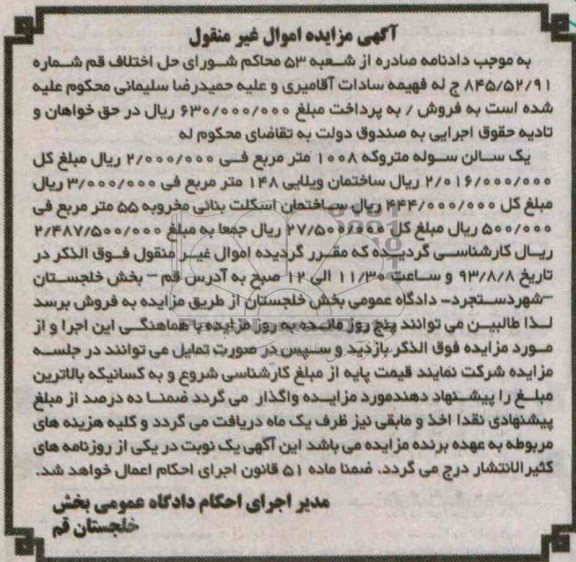 آگهی مزایده اموال غیر منقول
به موجب دادنامه صادره از شعبه ۵۳ محاکم شورای حل اختلاف قم شماره
۸۴۵/۵۲/۹۱ ج له فهیمه سادات آقامیری و علیه حمیدرضا سلیمانی محکوم علیه
شده است به فروش / به پرداخت مبلغ ۶۳۰/۰۰۰/۰۰۰ ریال در حق خواهان و
تادیه حقوق اجرایی به صندوق دولت به تقاضای محکوم له
یک سالن سوله متروکه ۱۰۰۸ متر مربع فی ۲/۰۰۰/۰۰۰ ریال مبلغ کل
۲/۰۱۶/۰۰۰/۰۰۰ ریال ساختمان ویلایی ۱۴۸ متر مربع فی ۳/۰۰۰/۰۰۰ ریال
مبلغ کل ۴۴۴/۰۰۰/۰۰۰ ریال ساختمان اسکلت بنائی مخروبه ۵۵ متر مربع فی
۵۰۰/۰۰۰ ریال مبلغ کل ۲۷/۵۰۰/۰۰۰ ریال جمعا به مبلغ ۲/۴۸۷/۵۰۰/۰۰۰
ریال کارشناسی گردیده که مقرر گردیده اموال غیر منقول فوق الذکر در
تاریخ ۹۳/۸/۸ و ساعت ۱۱/۳۰ الی ۱۲ صبح به آدرس قم – بخش خلجستان
–شهردستجرد– دادگاه عمومی بخش خلجستان از طریق مزایده به فروش برسد
لذا طالبین می توانند پنج روز مانده به روز مزایده با هماهنگی این اجرا و از
مورد مزایده فوق الذکر بازدید و سپس در صورت تمایل می توانند در جلسه
مزایده شرکت نمایند قیمت پایه از مبلغ کارشناسی شروع و به کسانیکه بالاترین
مبلغ را پیشنهاد دهندمورد مزایده واگذار می گردد ضمنا ده درصد از مبلغ
پیشنهادی نقدا اخذ و مابقی نیز ظرف یک ماه دریافت می گردد و کلیه هزینه های
مربوطه به عهده برنده مزایده می باشد این آگهی یک نوبت در یکی از روزنامه های
کثیرالانتشار درج می گردد. ضمنا ماده ۵۱ قانون اجرای احکام اعمال خواهد شد.
مدیر اجرای احکام دادگاه عمومی بخش
خلجستان قم